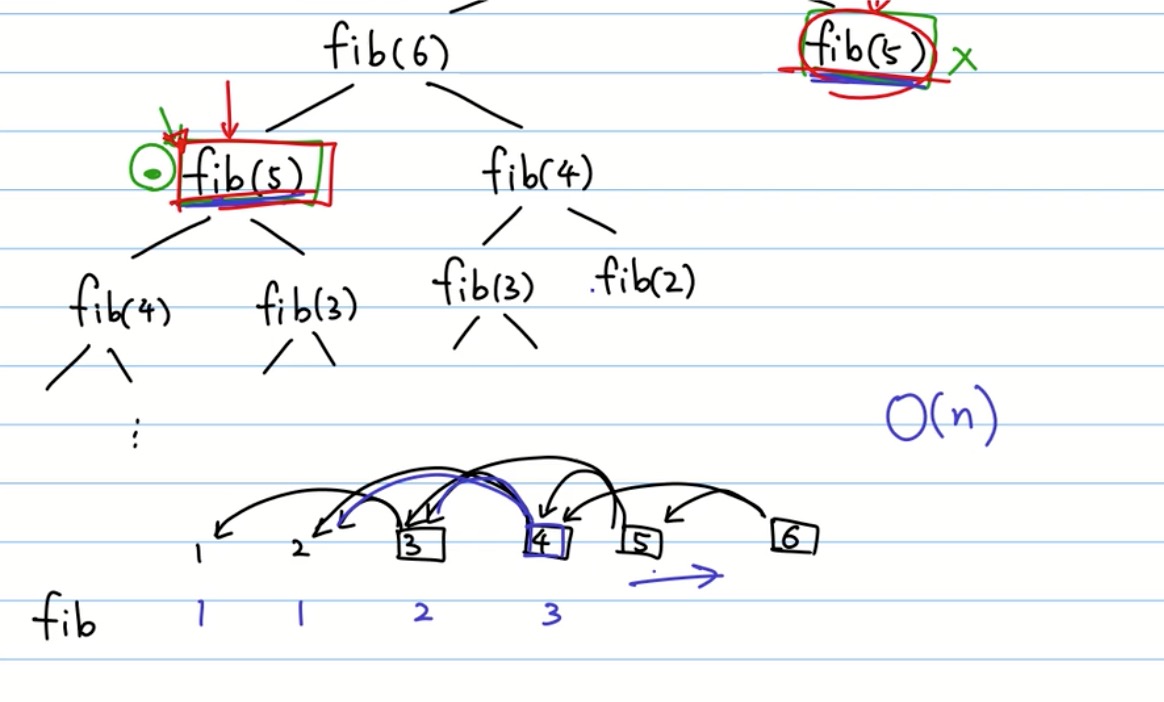 fib(6) fib(5) x
fib(5) fib(4)
fib(4) fib(3) fib(3) fib(2)
O(n)
1 2 3 4 5 6
fib 1 1 2 3